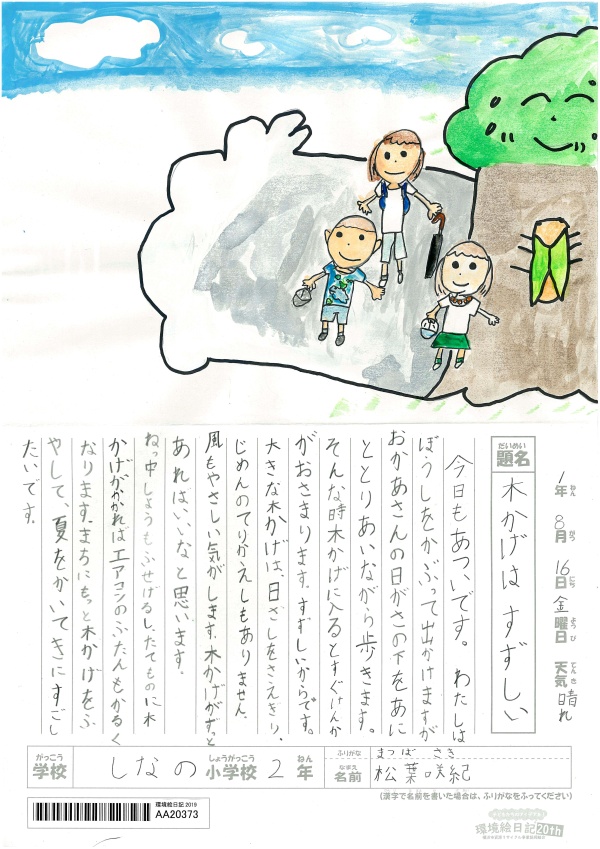 1年 8月 16日 金曜日 天気 晴れ
題名 木かげは すずしい
今日もあついです。わたしは
ぼうしをかぶって出かけますが
おかあさんの日がさの下をあに
ととりあいながら歩きます。
そんな時木かげに入るとすぐけんか
がおさまります。すずしいからです。
大きな木かげは、日ざしをさえぎり、
じめんのてりかえしもありません。
風もやさしい気がします。木かげがずっと
あればいいなと思います。
ねっ中しょうもふせげるし、たてものに木
かげがかかればエアコンのふたんもかるく
なります。まちにもっと木かげをふ
やして、夏をかいてきにすごし
たいです。
学校 しなの小学校 2年
名前 松葉咲紀
まつば さき
(漢字で名前を書いた場合は、ふりがなをふってください)
環境絵日記2019
AA20373
環境絵日記20th